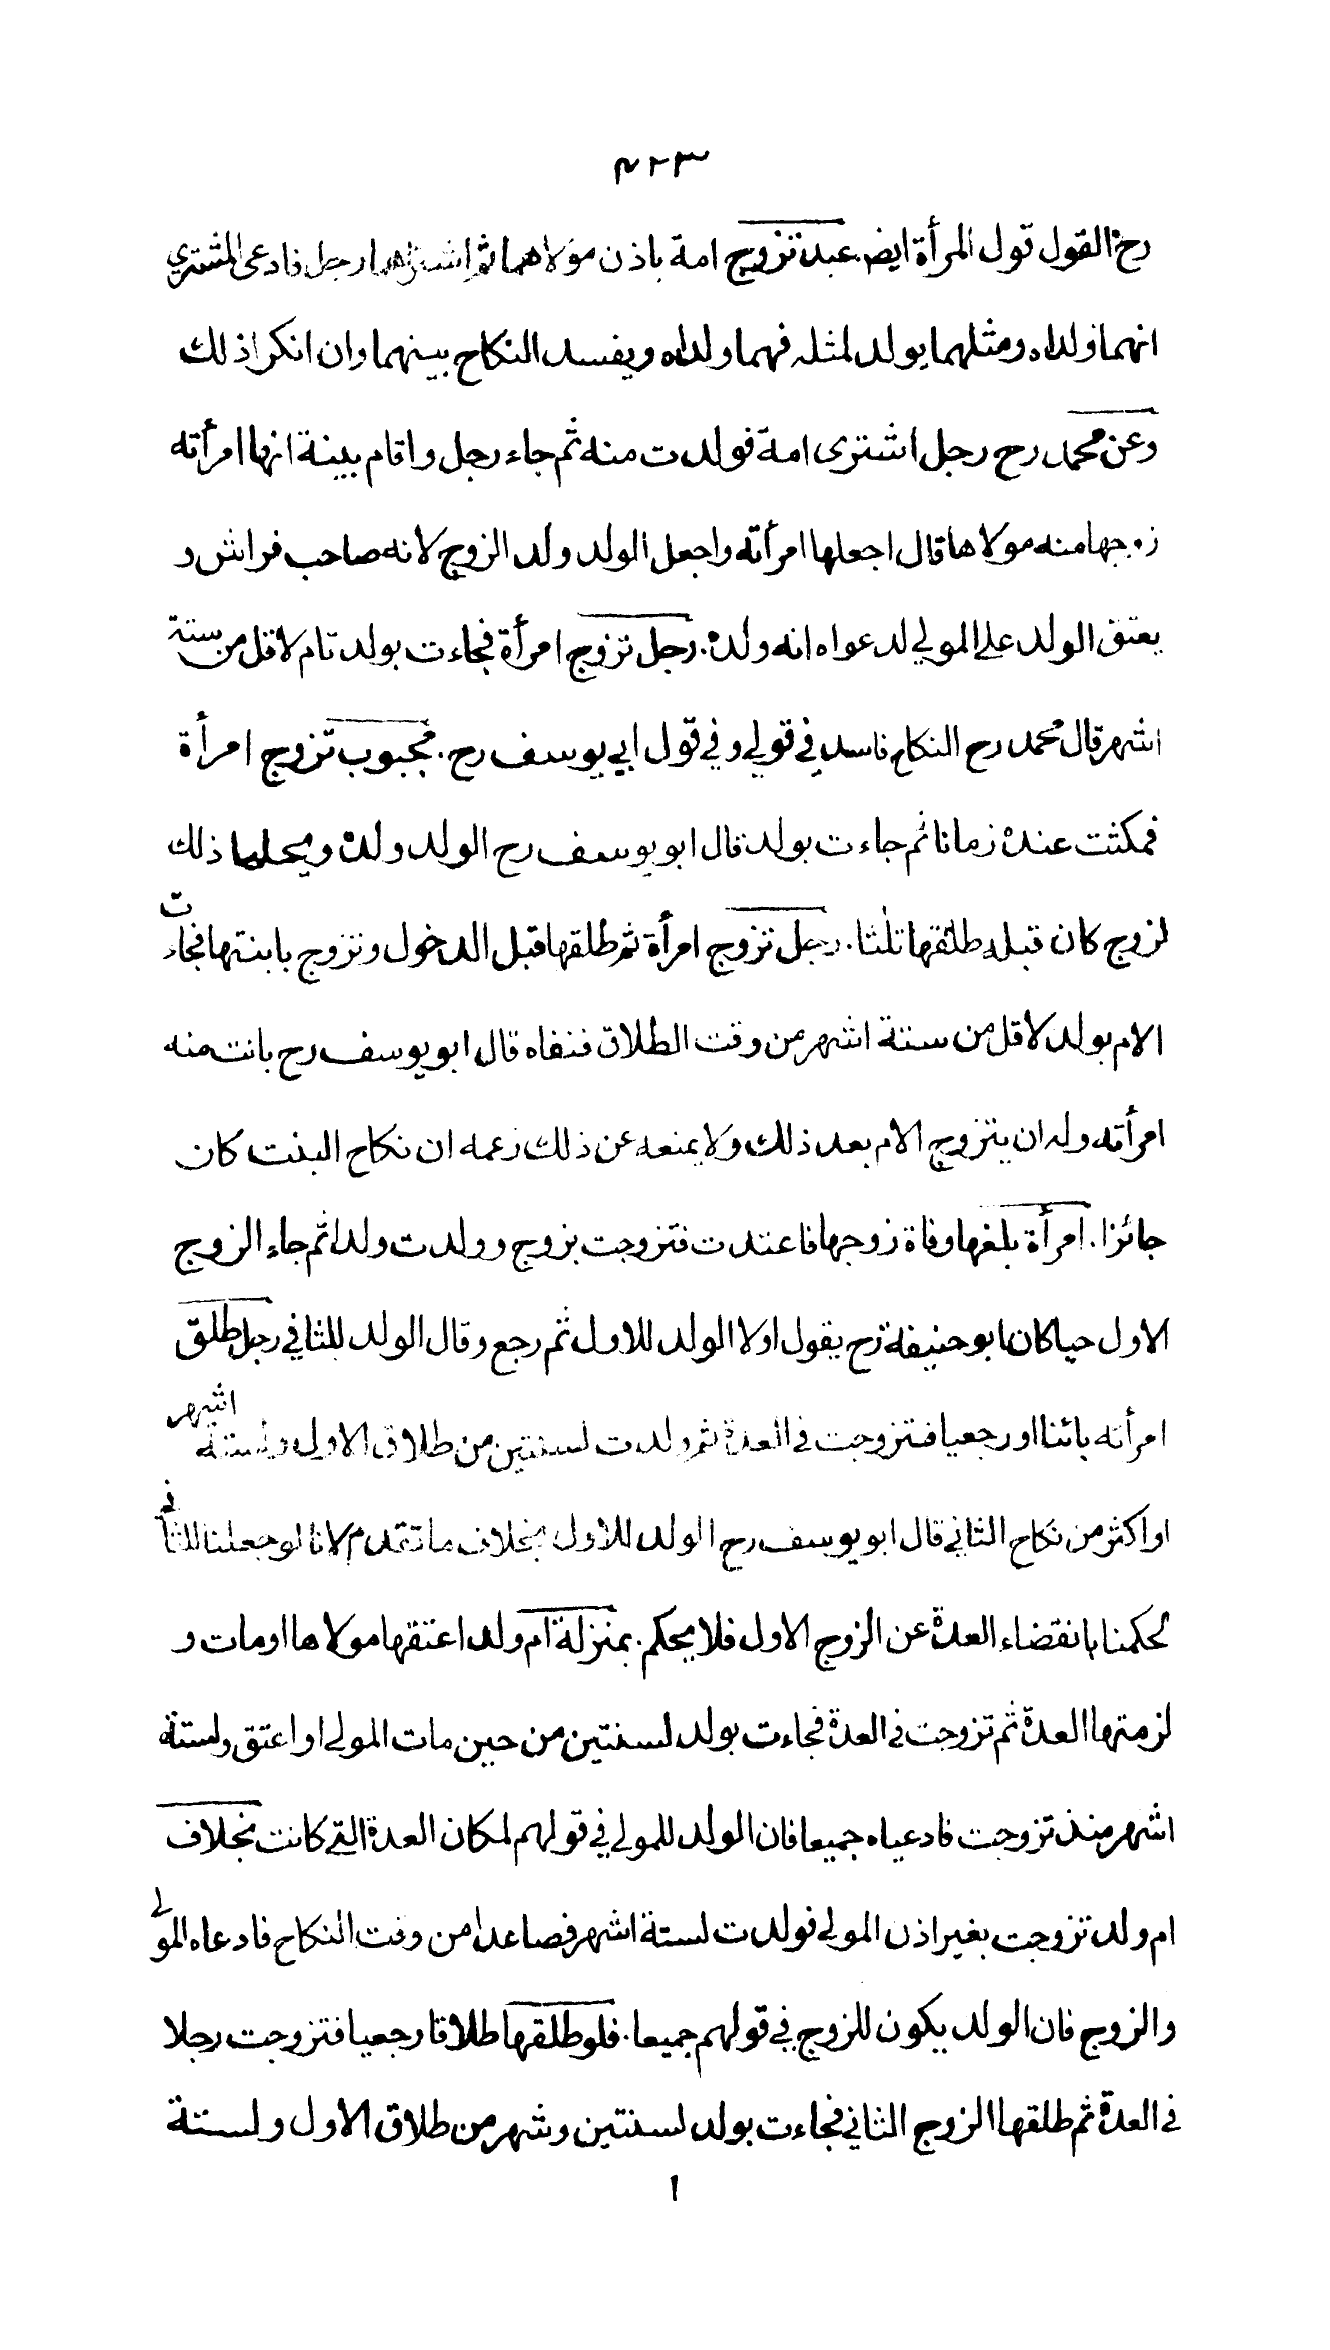 ٤٢٣
رح القول قول المرأة ايض. عبد تزوج امة باذن مولاهما ثم اشتراهما رجل فادعى المشتري
انهما ولداه ومثلهما يولد لمثله فهما ولداه ويفسد النكاح بينهما وان انكرا ذلك
وعن محمد رح رجل اشترى امة فولدت منه ثم جاء رجل واقام بينة انها امرأته
زوجها منه مولاها قال اجعلها امرأته واجعل الولد ولد الزوج لانه صاحب فراش و
يعتق الولد على المولي لدعواه انه ولده. رجل تزوج امرأة فجاءت بولد تام لاقل من ستة
اشهر قال محمد رح النكاح فاسد في قولي وفي قول ابي يوسف رح. مجبوب تزوج امرأة
فمكثت عنده زمانا ثم جاءت بولد قال ابو يوسف رح الولد ولده ويحلها ذلك
لزوج كان قبله طلقها ثلثا. رجل تزوج امرأة ثم طلقها قبل الدخول وتزوج بابنتها فجاءت
الام بولد لاقل من ستة اشهر من وقت الطلاق فنفاه قال ابو يوسف رح بانت منه
امرأته وله ان يتزوج الام بعد ذلك ولا يمنعه عن ذلك زعمه ان نكاح البنت كان
جائزا. امرأة بلغها وفاة زوجها فاعتدت فتزوجت بزوج وولدت ولدا ثم جاء الزوج
الاول حيا كان ابو حنيفة رح يقول اولا الولد للاول ثم رجع وقال الولد للثاني رجل طلق
امرأته بائنا او رجعيا فتزوجت في العدة ثم ولدت لسنتين من طلاق الاول ولستة اشهر
او اكثر من نكاح الثاني قال ابو يوسف رح الولد للاول بخلاف ما تقدم لانا لو جعلنا للثاني
لحكمنا بانقضاء العدة عن الزوج الاول فلا يحكم. بمنزلة ام ولد اعتقها مولاها او مات و
لزمتها العدة ثم تزوجت في العدة فجاءت بولد لسنتين من حين مات المولي او اعتق ولستة
اشهر منذ تزوجت فادعياه جميعا فان الولد للمولي في قولهم لمكان العدة التي كانت بخلاف
ام ولد تزوجت بغير اذن المولي فولدت لستة اشهر فصاعدا من وقت النكاح فادعاه المولي
والزوج فان الولد يكون للزوج في قولهم جميعا. فلو طلقها طلاقا رجعيا فتزوجت رجلا
في العدة ثم طلقها الزوج الثاني فجاءت بولد لسنتين وشهر من طلاق الاول ولستة
ا